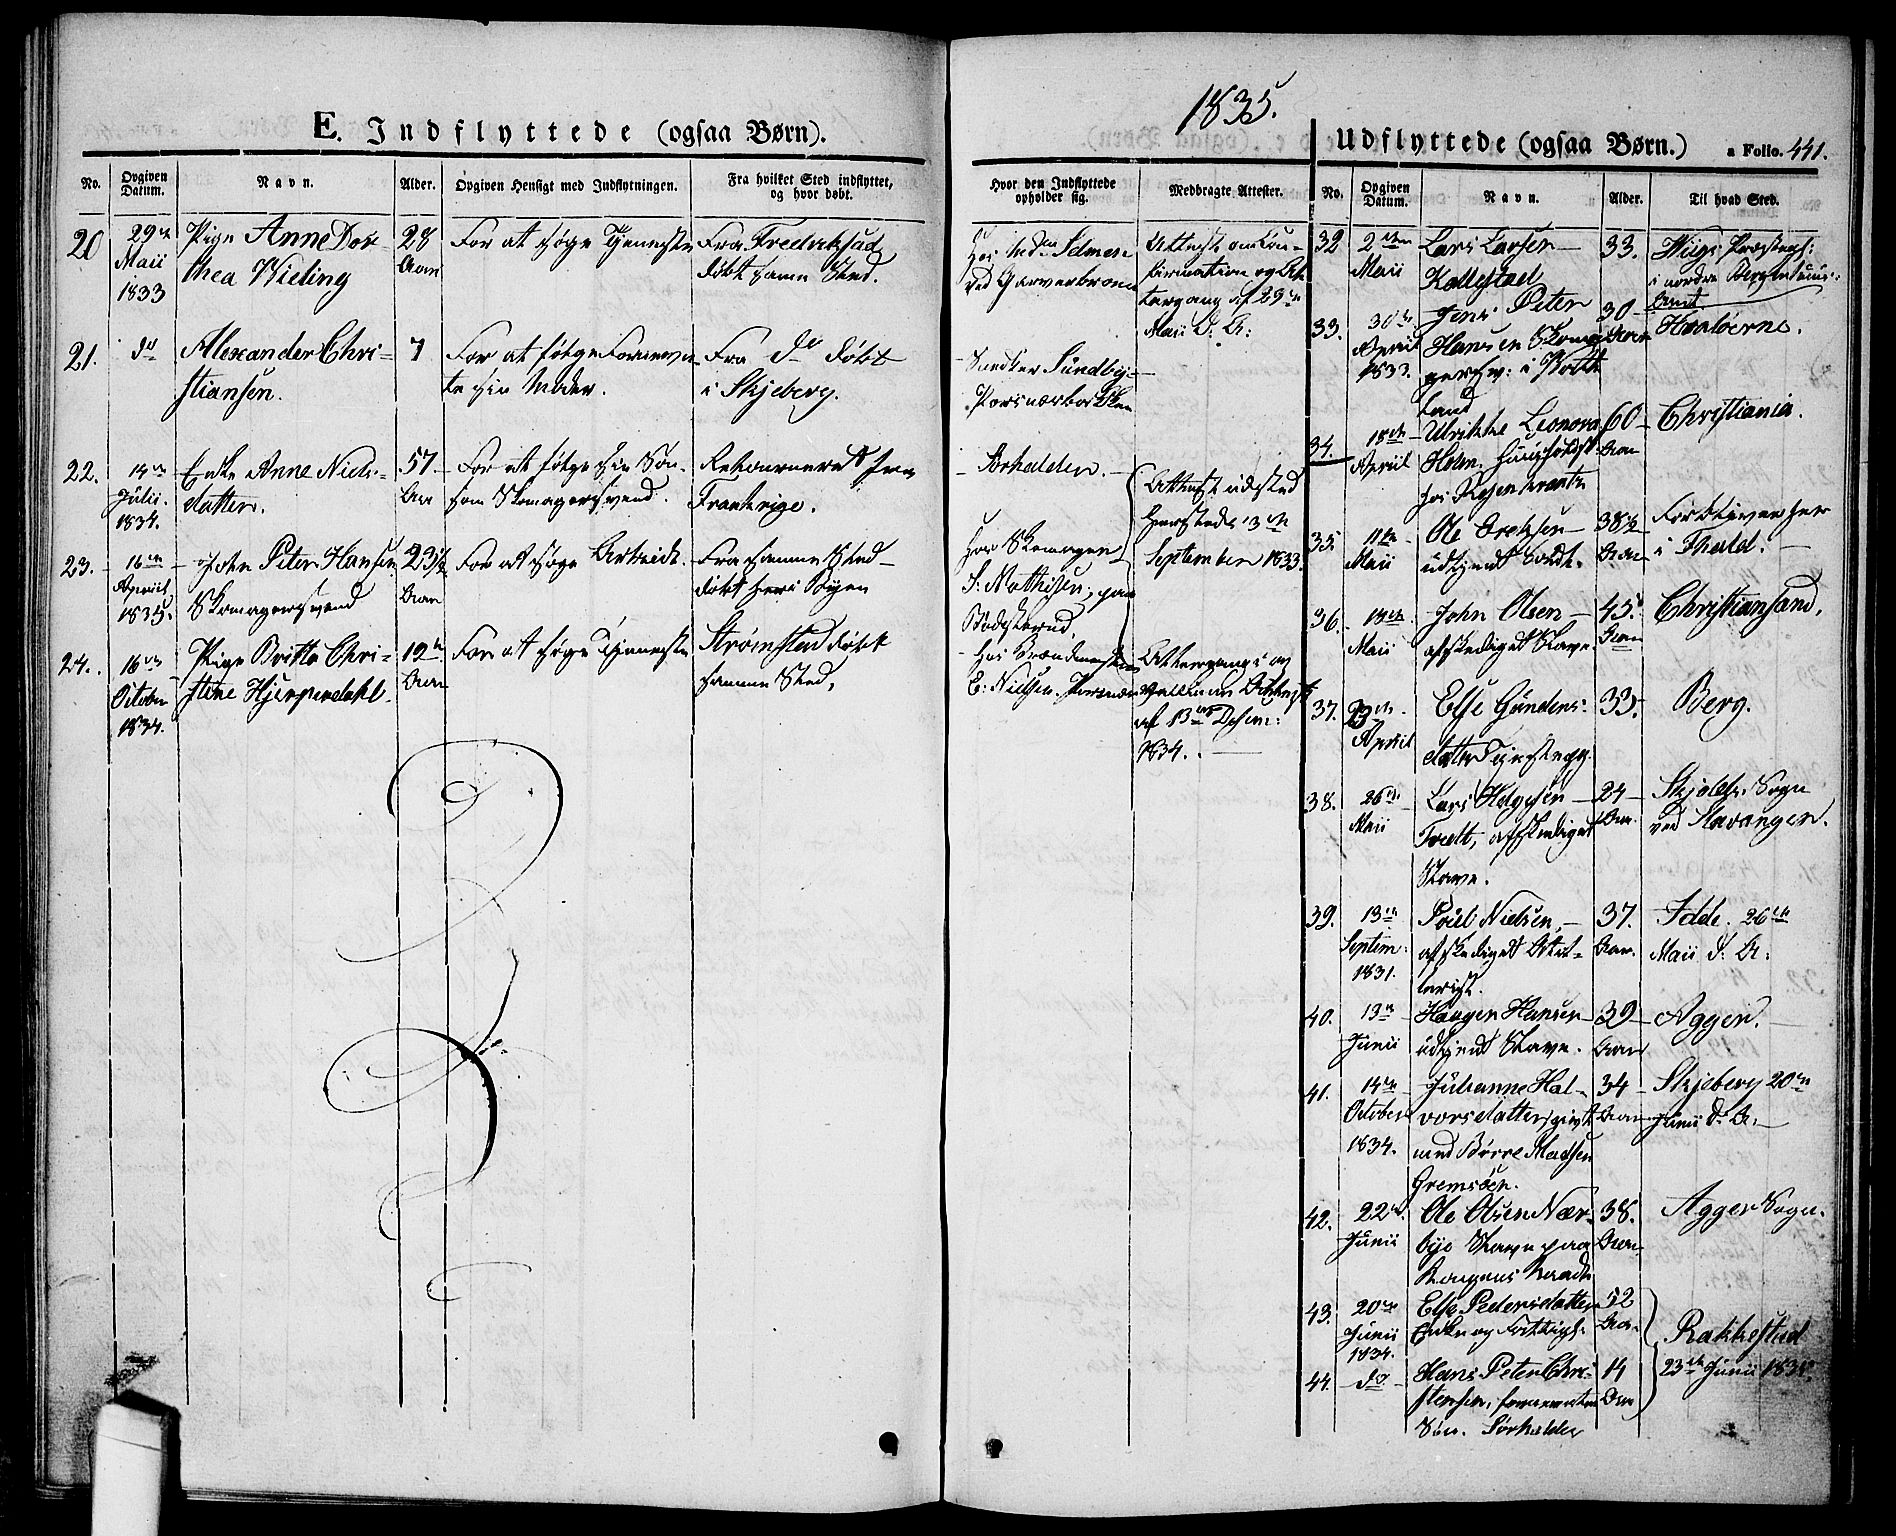 1835.
E. Indflyttede (ogsaa Børn).
No.
Opgiven Datum.
Navn.
Alder.
Opgiven Hensigt med Indflytningen.
Fra hvilket Sted indflyttet, og hvor døbt.
Hvor den Indflyttede opholder sig.
Medbragte Attester.
20
29de Maii 1833
Pige Anne Dor-
thea Wieling
28 Aar
For at søge Tjeneste
Fra Fredrikstad
døbt samme Sted.
Hos
ved Garverbroen
Attest om Con-
firmation og Al-
tergang af 29de
Maii d. A:
21.
do
Alexander Chri-
stiansen.
7
For at følge
sin Moder.
Fra do døbt
i Skjeberg.
Snedker Sundby
22.
14de Julii 1834.
Enke Anne Niels-
datter.
57 Aar
For at følge sin Søn
som Skomagersvend.
Retourneret fra
Frankrige.
Sørhalden.
Attest udsted
13de
September 1833.
23.
16de April 1835.
John Peter Hansen
Skomagersvend
23½ Aar
For at søge Arbeide.
Fra samme Sted
døbt Byen
Hos Skomager
S. Mathisen, paa
24.
16de October 1834.
Pige Britta Chri-
stine Hjerpendahl.
19 Aar
For at søge Tjeneste
Strømstad døbt
samme Sted.
Hos Brandmester
E. Nielsen
Altergangs og
Attest
af 13de Decem:
1834.
Udflyttede (ogsaa Børn.)
a Folio. 441.
No.
Opgiven Datum.
Navn.
Alder.
Til hvad Sted.
32
2den Maii
Lars Larsen
Kollestad
33.
Wiigs Præstegj:
i nordre Bergenhuus
Amt
33.
30te April 1833.
Jens Peter
Hansen
30 Aar
Hvaløerne.
34.
18de April
Ulrikke Leonora
Holm,
hos Rosenkrantz
60 Aar
Christiania.
35.
11te Maii
Ole
udtjent Soldt.
38½ Aar
Forbliver her
i Fhald.
36.
13de Maii
John Olsen
afskediget Slave.
45 Aar
Christiansand.
37.
23de April
Else Gundens-
datter
33.
Berg.
38.
26de Maii
Lars Helgesen
Tvedt, afskediget
Slave.
24 Aar.
Skjolds Sogn
ved Stavanger.
39.
13de Septem: 1831.
Poul Nielsen,
afskediget Artil-
lerist.
37. Aar.
Idde. 26de
Maii d. A:
40.
13de Junii
Haagen Hansen
udtjent Slave.
39 Aar
Agger.
41.
14de October 1834.
Julianne Hal-
vorsdatter, givt
med Børre Madsen
Gremsøen.
34 Aar
Skjeberg 20de
Junii d. A.
42.
22de Junii
Ole Olsen Nær-
bye Slave paa
Kongens Naade
38. Aar
Agger Sogn.
43.
20de Junii 1834.
Else Pedersdatter
Enke og Fattigl:
52 Aar.
Rakkestad
23de Junii 1835.
44.
do
Hans Peter Chri-
stensen, forannævntes
Søn. Sørhalden
14 Aar